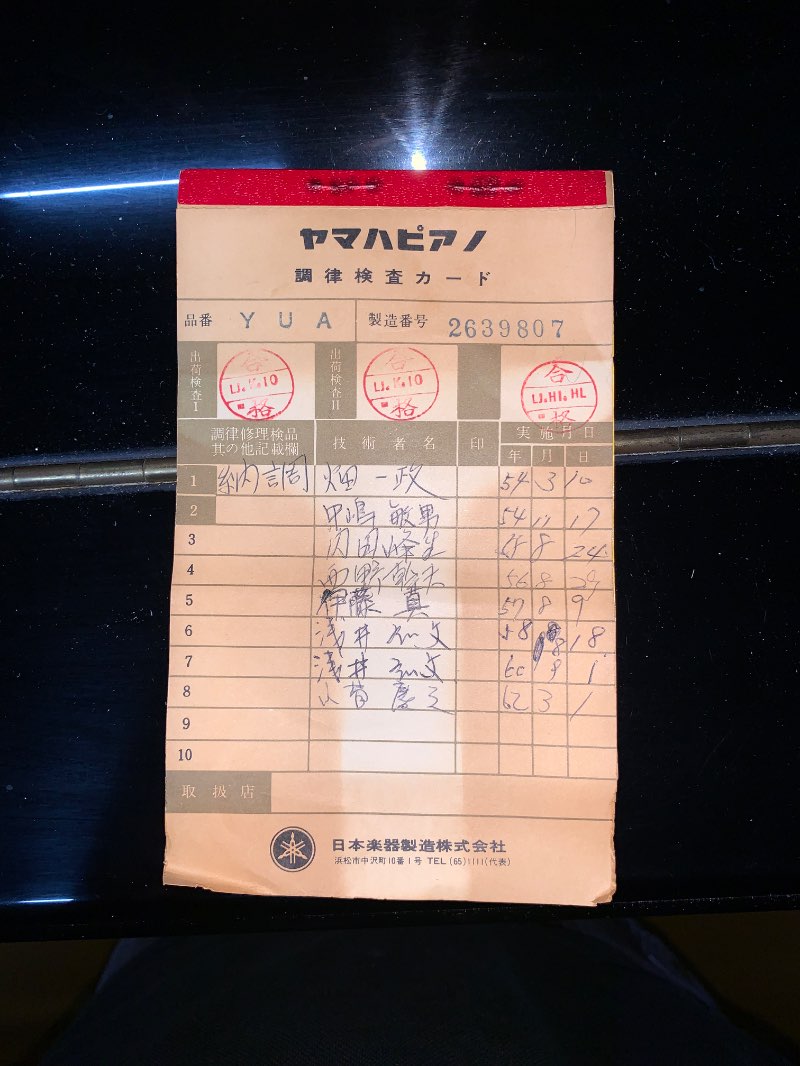 ヤマハピアノ
調律検査カード
品番 YUA 製造番号 2639807
出荷検査I 合格 LJ.K.10 出荷検査II 合格 LJ.K.10 合格 LJ.HI.HL
調律修理検品その他記載欄 技術者名 印 実施月日
年 月 日
1 納調 畑一政 54 3 10
2 中嶋敏男 54 11 17
3 8 24
4 西野 56 8 29
5 伊藤真 57 8 9
6 浅井 58 8 18
7 浅井 60 9 1
8 62 3 1
9
10
取扱店
日本楽器製造株式会社
浜松市中沢町10番1号 TEL (65)1111(代表)